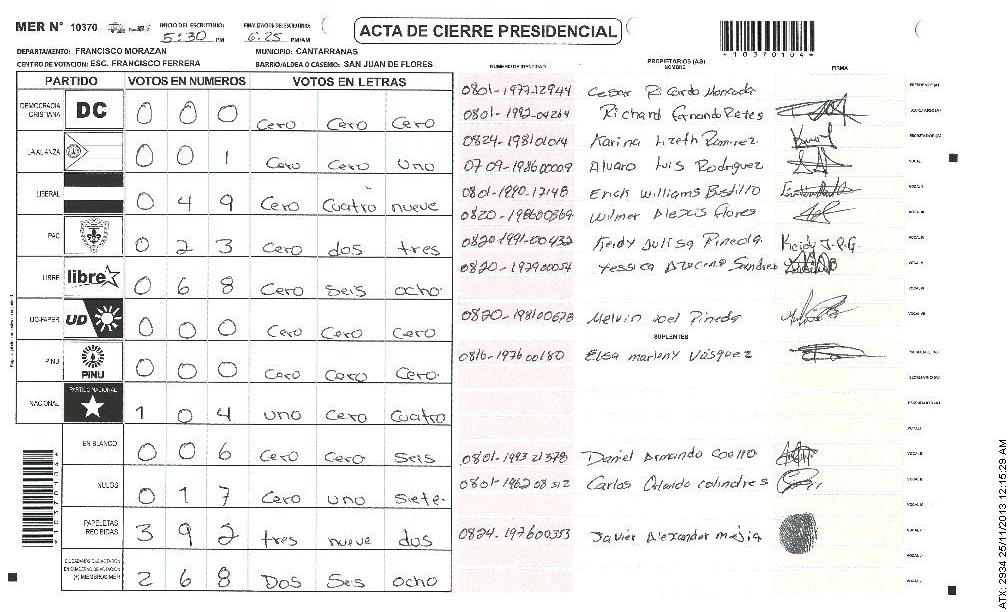 MER N° 10370 INICIO DEL ESCRUTINIO: 5:30 PM FINALIZACION DEL ESCRUTINIO: 6:25 PM/AM
ACTA DE CIERRE PRESIDENCIAL
*10370104*
DEPARTAMENTO: FRANCISCO MORAZAN MUNICIPIO: CANTARRANAS
CENTRO DE VOTACION: ESC. FRANCISCO FERRERA BARRIO/ALDEA O CASERIO: SAN JUAN DE FLORES
PARTIDO VOTOS EN NUMEROS VOTOS EN LETRAS
DEMOCRACIA CRISTIANA DC 0 0 0 Cero Cero Cero
LA ALIANZA 0 0 1 Cero Cero Uno
LIBERAL 0 4 9 Cero Cuatro nueve
PAC 0 2 3 Cero dos tres
LIBRE libre 0 6 8 Cero seis ocho
UD-FAPER UD 0 0 0 Cero Cero Cero
PINU PINU 0 0 0 Cero Cero Cero
NACIONAL PARTIDO NACIONAL 1 0 4 uno Cero Cuatro
EN BLANCO 0 0 6 Cero Cero Seis
NULOS 0 1 7 Cero uno siete
PAPELETAS RECIBIDAS 3 9 2 tres nueve dos
CIUDADANOS QUE VOTARON EN CUADERNO DE VOTACION (+) MIEMBROS MER 2 6 8 Dos Seis ocho
NUMERO DE IDENTIDAD PROPIETARIOS (AS) NOMBRE FIRMA
0801-1977-12944 Cesar Ricardo Moncada
0801-1992-04264 Richard Fernando Retes
0824-198101014 Karina Lizeth Ramirez
0709-198600009 Alvaro Luis Rodriguez
0801-1990-17148 Erick Williams Bustillo
0820-198600369 Wilmer Alexis Flores
0820 1991-00432 Keidy Julisa Pineda Keidy J.P.G.
0820-197900054 Yessica Azucena Sandres
0820-198100678 Melvin Joel Pineda
SUPLENTES
0816-1976 00180 Elsa marleny Vásquez
0801-1993 21378 Daniel Armando Coello
0801-1962 08 512 Carlos Orlando colindres
0824-197600353 Javier Alexander mejia
*10370104*
ATX: 2934 25/11/2013 12:15:29 AM